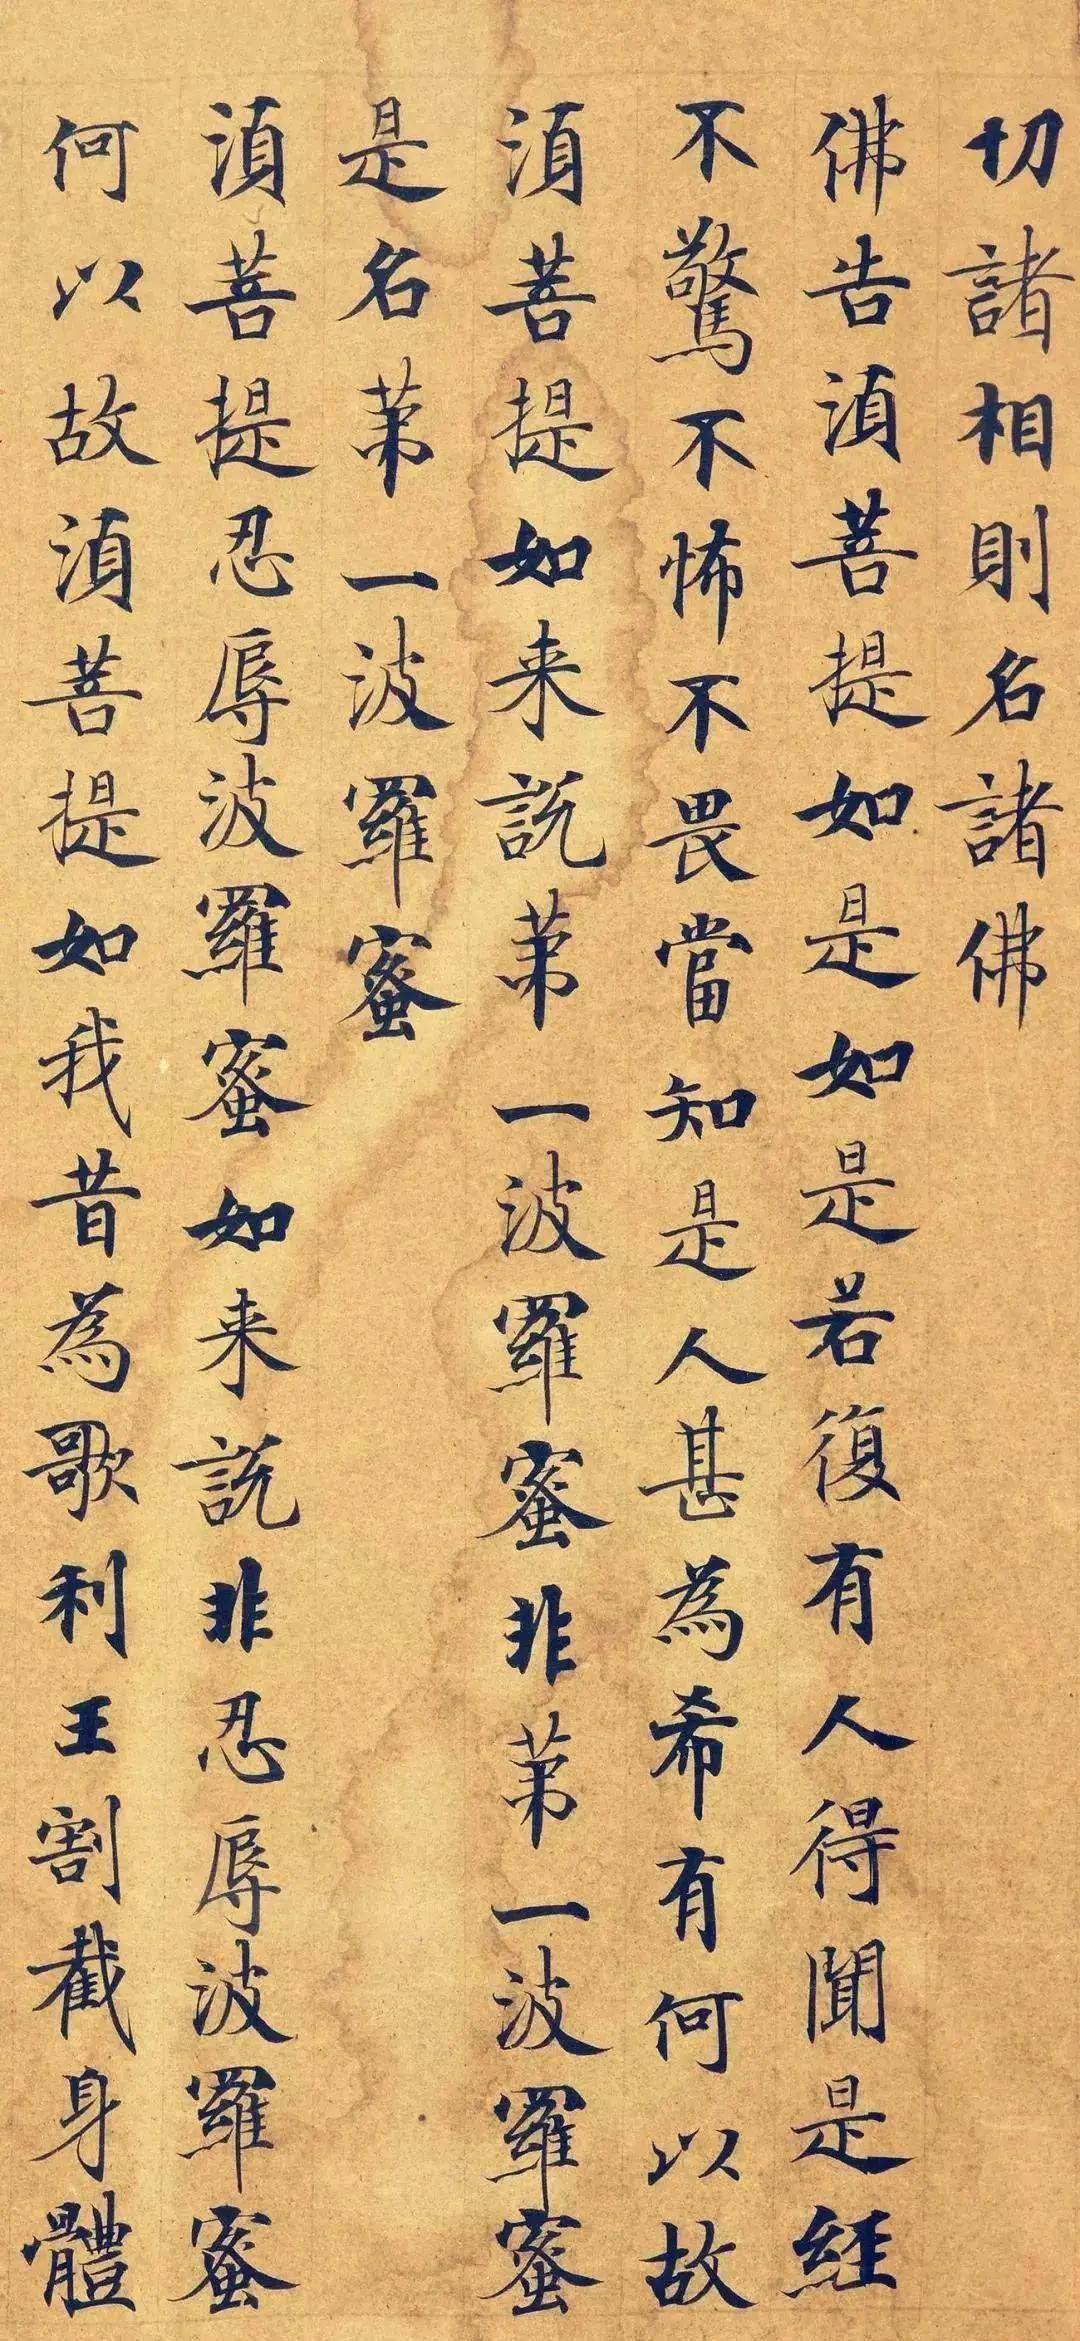 切諸相則名諸佛
佛告湏菩提如是如是若復有人得聞是經
不驚不怖不畏當知是人甚為希有何以故
湏菩提如来說苐一波羅蜜非苐一波羅蜜
是名苐一波羅蜜
湏菩提忍辱波羅蜜如来說非忍辱波羅蜜
何以故湏菩提如我昔為歌利王割截身體